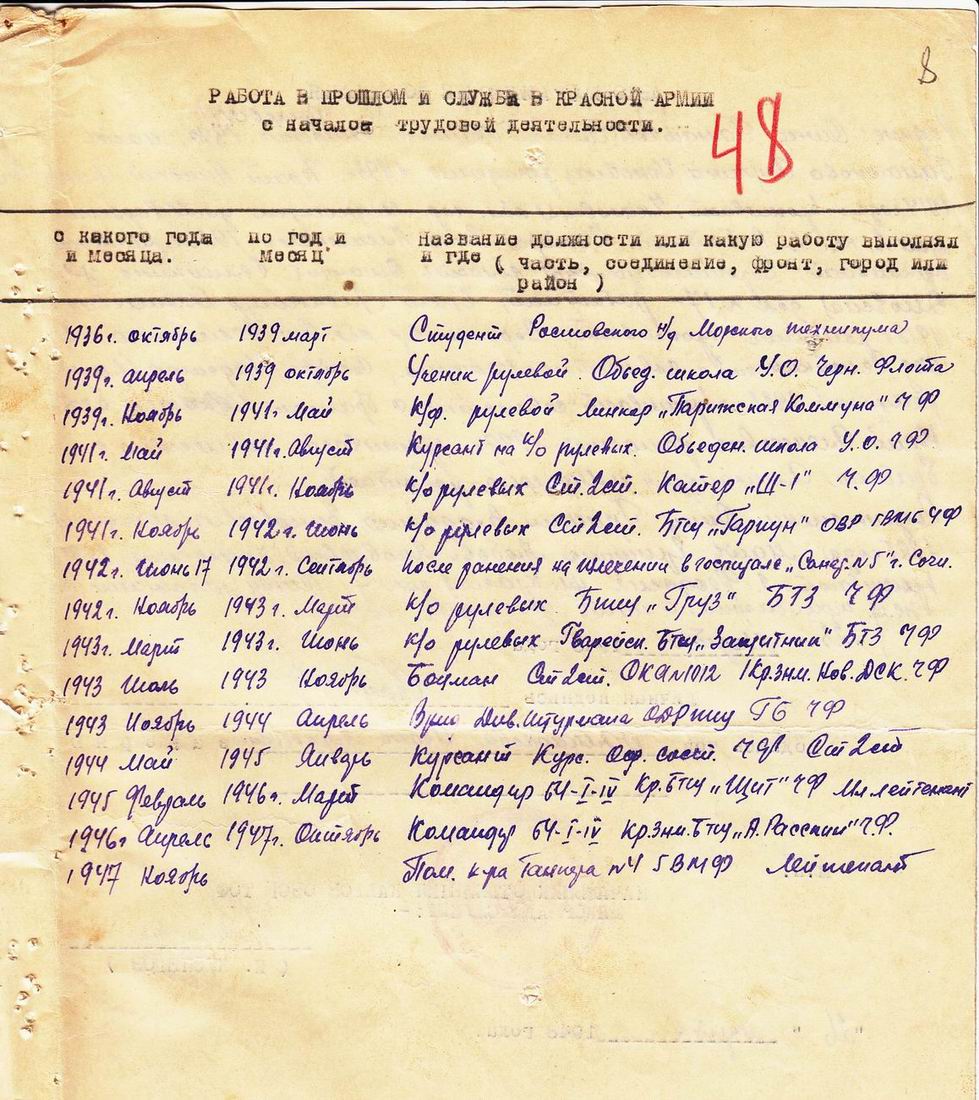 8
РАБОТА В ПРОШЛОМ И СЛУЖБА В КРАСНОЙ АРМИИ
с началоа трудовой деятельности.
48
с какого года по год и Название должности или какую работу выполнял
и месяца. месяц. и где ( часть, соединение, фронт, город или
район )
1936 г. октябрь 1939 март Студент Ростовского н/д Морского техникума
1939 г. апрель 1939 октябрь Ученик рулевой. Объед. школа У.О. Черн. Флота
1939 г. Ноябрь 1941 г. Май К/ф. рулевой линкор „Парижская Коммуна" ЧФ
1941 г. Май 1941 г. Август Курсант на к/о рулевых. Объеден. школа У.О. ЧФ
1941 г. Август 1941 г. Ноябрь к/о рулевых Ст. 2 ст. Катер „Щ-1" Ч.Ф
1941 г. Ноябрь 1942 г. Июнь к/о рулевых Ст 2 ст. Бтщ „Гарпун" ОВР ГВМБ ЧФ
1942 г. Июнь 17 1942 г. Сентябрь После ранения на излечении в госпитале „Санат. №5" г. Сочи.
1942 г. Ноябрь 1943 г. Март к/о рулевых Бтщ „Груз" БТЗ ЧФ
1943 г Март 1943 г. Июнь к/о рулевых Гвардейск. Бтщ „Защитник" БТЗ ЧФ
1943 Июль 1943 Ноябрь Боцман Ст 2 ст. СКА №1012 1 Кр.знм. Нов. ДСК. ЧФ
1943 Ноябрь 1944 Апрель Врио Див. Штурмана ГБ ЧФ
1944 Май 1945 Январь Курсант Курс. Оф. сост. ЧФ Ст 2 ст
1945 Февраль 1946 г. Март Командир БЧ-I-IV Кр. Бтщ „Щит" ЧФ Мл лейтенант
1946 г Апрель 1947 г. Октябрь Командир БЧ-I-IV Кр.знм. Бтщ „А. Расскин" ЧФ.
1947 Ноябрь Пом. к-ра Танкера №4 5 ВМФ Лейтенант